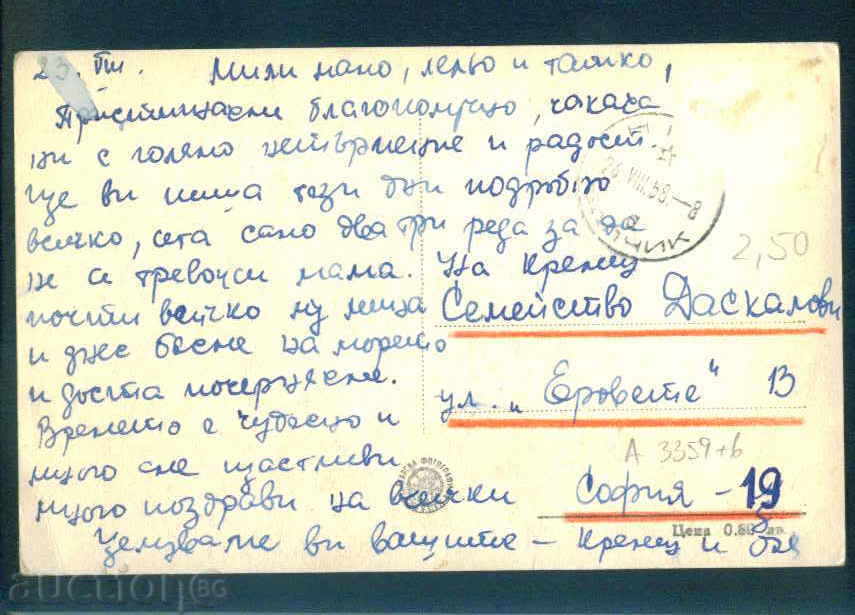 23. VIII. Мили мамо, лельо и татко,
Пристигнахме благополучно, чакаха
ни с голямо нетърпение и радост.
Ще ви пиша тези дни подробно
всичко, сега само два три реда за да
не се тревожи мама. На Кремец
почти всичко му мина
и днес бяхме на морето
и доста почерняхме.
Времето е чудесно и
много сме щастливи.
много поздрави на всички
Целуваме ви вашите – Кремец и
26 VIII.58.–8
2,50
Семейство Даскалови
ул. „Еровете" 13
А 3359+б
София – 19
Цена 0.80 лв.